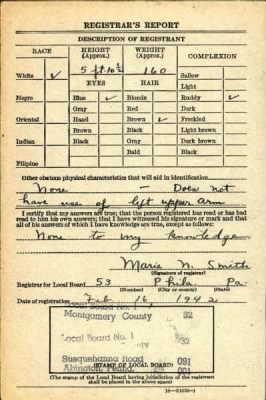 REGISTRAR'S REPORT
DESCRIPTION OF REGISTRANT
RACE HEIGHT (Approx.) WEIGHT (Approx.) COMPLEXION
5 ft 10½ 160
White ✓ EYES HAIR Sallow
Light
Negro Blue ✓ Blonde Ruddy ✓
Gray Red Dark
Oriental Hazel Brown ✓ Freckled
Brown Black Light brown
Indian Black Gray Dark brown
Bald Black
Filipino
Other obvious physical characteristics that will aid in identification
None — Does not
have use of left upper arm
I certify that my answers are true; that the person registered has read or has had
read to him his own answers; that I have witnessed his signature or mark and that
all of his answers of which I have knowledge are true, except as follows:
None to my knowledge
Marie N. Smith
(Signature of registrar)
Registrar for Local Board 53 Phila Pa.
(Number) (City or county) (State)
Date of registration Feb 16, 1942
Local Board No. 1
Montgomery County 32
Local Board No. 1 32
Susquehanna Road 091
Abington, Penna. 001
(STAMP OF LOCAL BOARD)
(The stamp of the Local Board having jurisdiction of the registrant
shall be placed in the above space)